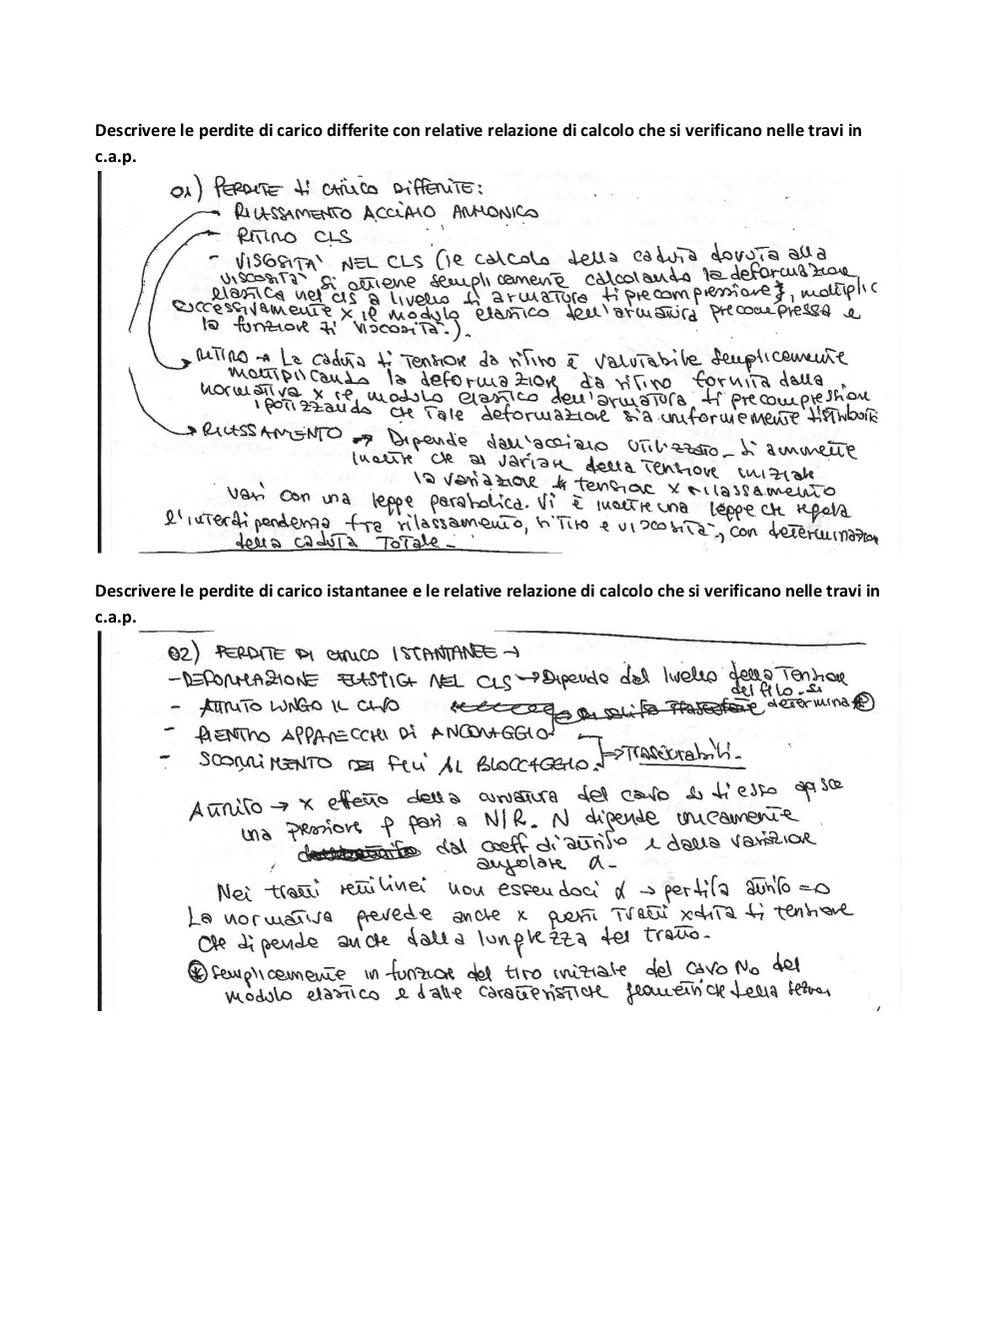 Descrivere le perdite di carico differite con relative relazione di calcolo che si verificano nelle travi in
c.a.p.
01) PERDITE di CARICO DIFFERITE:
- RILASSAMENTO ACCIAIO ARMONICO
- RITIRO CLS
- VISCOSITA' NEL CLS (il calcolo della caduta dovuta alla
viscosità si ottiene semplicemente calcolando la deformazione
elastica nel cls a livello di armatura di precompressione, moltiplic
successivamente x il modulo elastico dell'armatura precompressa e
la funzione di viscosità.).
RITIRO → La caduta di tensione da ritiro è valutabile semplicemente
moltiplicando la deformazione da ritiro fornita dalla
normativa x il modulo elastico dell'armatura di precompression
ipotizzando che tale deformazione sia uniformemente distribuita
RILASSAMENTO → Dipende dall'acciaio utilizzato. Si ammette
inoltre che al variare della tensione iniziale
la variazione di tensione x rilassamento
vari con una legge parabolica. Vi è inoltre una legge che regola
l'interdipendenza fra rilassamento, ritiro e viscosità, con determinazion
della caduta totale.
Descrivere le perdite di carico istantanee e le relative relazione di calcolo che si verificano nelle travi in
c.a.p.
02) PERDITE DI CARICO ISTANTANEE →
- DEFORMAZIONE ELASTICA NEL CLS → Dipende dal livello della tensione
del filo. si
- ATTRITO LUNGO IL CAVO determina *
- RIENTRO APPARECCHI DI ANCORAGGIO
- SCORRIMENTO DEI FILI AL BLOCCAGGIO. → Trascurabili.
Attrito → x effetto della curvatura del cavo di esso agisce
una pressione p pari a N/R. N dipende unicamente
dal coeff di attrito e dalla variazione
angolare α.
Nei tratti rettilinei non essendoci α → perdita attrito = 0
La normativa prevede anche x questi tratti xdita di tensione
che dipende anche dalla lunghezza del tratto.
* semplicemente in funzione del tiro iniziale del cavo No del
modulo elastico e dalle caratteristiche geometriche della sezion